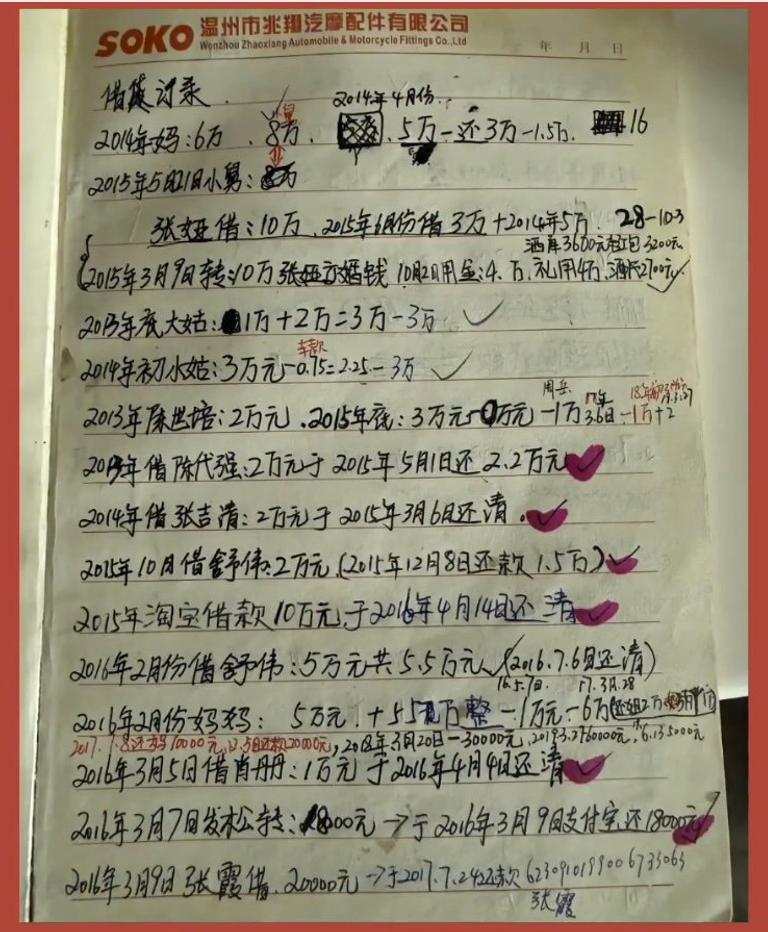 SOKO 温州市兆翔汽摩配件有限公司
Wenzhou Zhaoxiang Automobile & Motorcycle Fittings Co.,Ltd
年 月 日
借贷记录
2014年4月份
2014年妈:6万、8万、5万-还3万-1.5万. 16
2015年5月21日小舅:
张娅借:10万、2015年6月份借3万+2014年5万. 28-10=3
2015年3月9日转:10万张娅 婚钱 10月2日用金:4.万、礼用4万、酒 2700元
2013年底大姑:1万+2万=3万-3万 ✓
车款
2014年初小姑:3万元-0.75=2.25-3万 ✓
2013年陈世培:2万元、2015年底:3万元 万元-1万 3.6日-1万+2
借陈代强:2万元于2015年5月1日还2.2万元✓
2014年借张吉清:2万元于2015年3月6日还清.✓
2015年10月借舒伟:2万元(2015年12月8日还款1.5万)✓
2015年淘宝借款10万元于2016年4月14日还清✓
2016年2月份借舒伟:5万元共5.5万元(2016.7.6日还清)
16.5.7日. 17.3月.28
2016年2月份妈妈: 5万元.+5 万整-1万元-6万
2017.7.8还妈10000元, 还款20000元,2018年3月20日-30000元,
2016年3月5日借肖丹丹:1万元于2016年4月4日还清✓
2016年3月7日发松转: 8000元→于2016年3月9日支付宝还18000元✓
2016年3月9日张霞借.20000元→于2017.7.24还款6230910199006733063
张霞